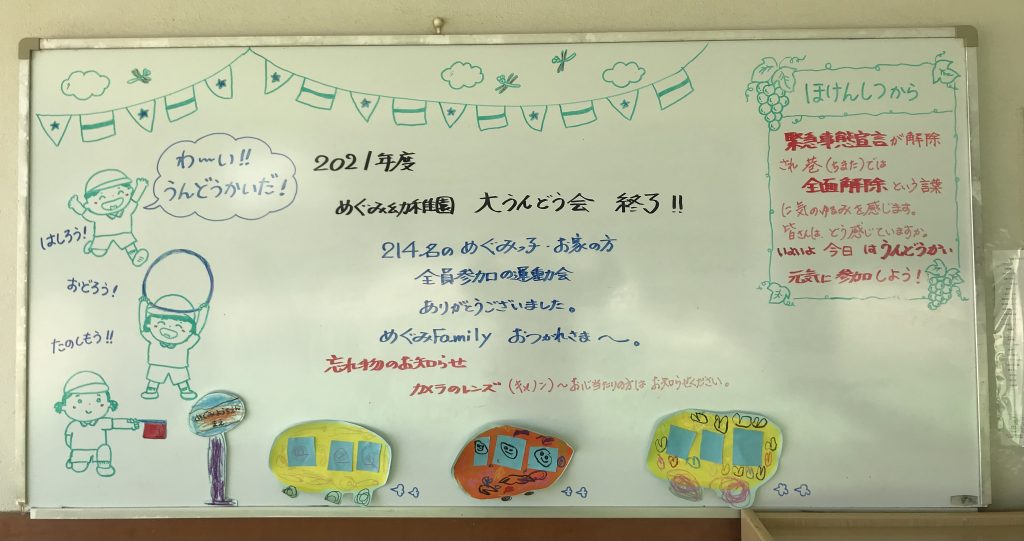 わーい!!
うんどうかいだ!
はしろう!
おどろう!
たのしもう!!
2021年度
めぐみ幼稚園 大うんどう会 終了!!
214名の めぐみっ子・お家の方
全員参加の運動会
ありがとうございました。
めぐみFamily おつかれさま〜。
忘れ物のお知らせ
カメラのレンズ(キャノン)〜お心当たりの方は お知らせください。
ほけんしつから
緊急事態宣言が解除
され 巷(ちまた)では
全面解除という言葉
に気のゆるみを感じます。
皆さんは、どう感じていますか。
今日 はうんどうかい
元気に参加しよう!